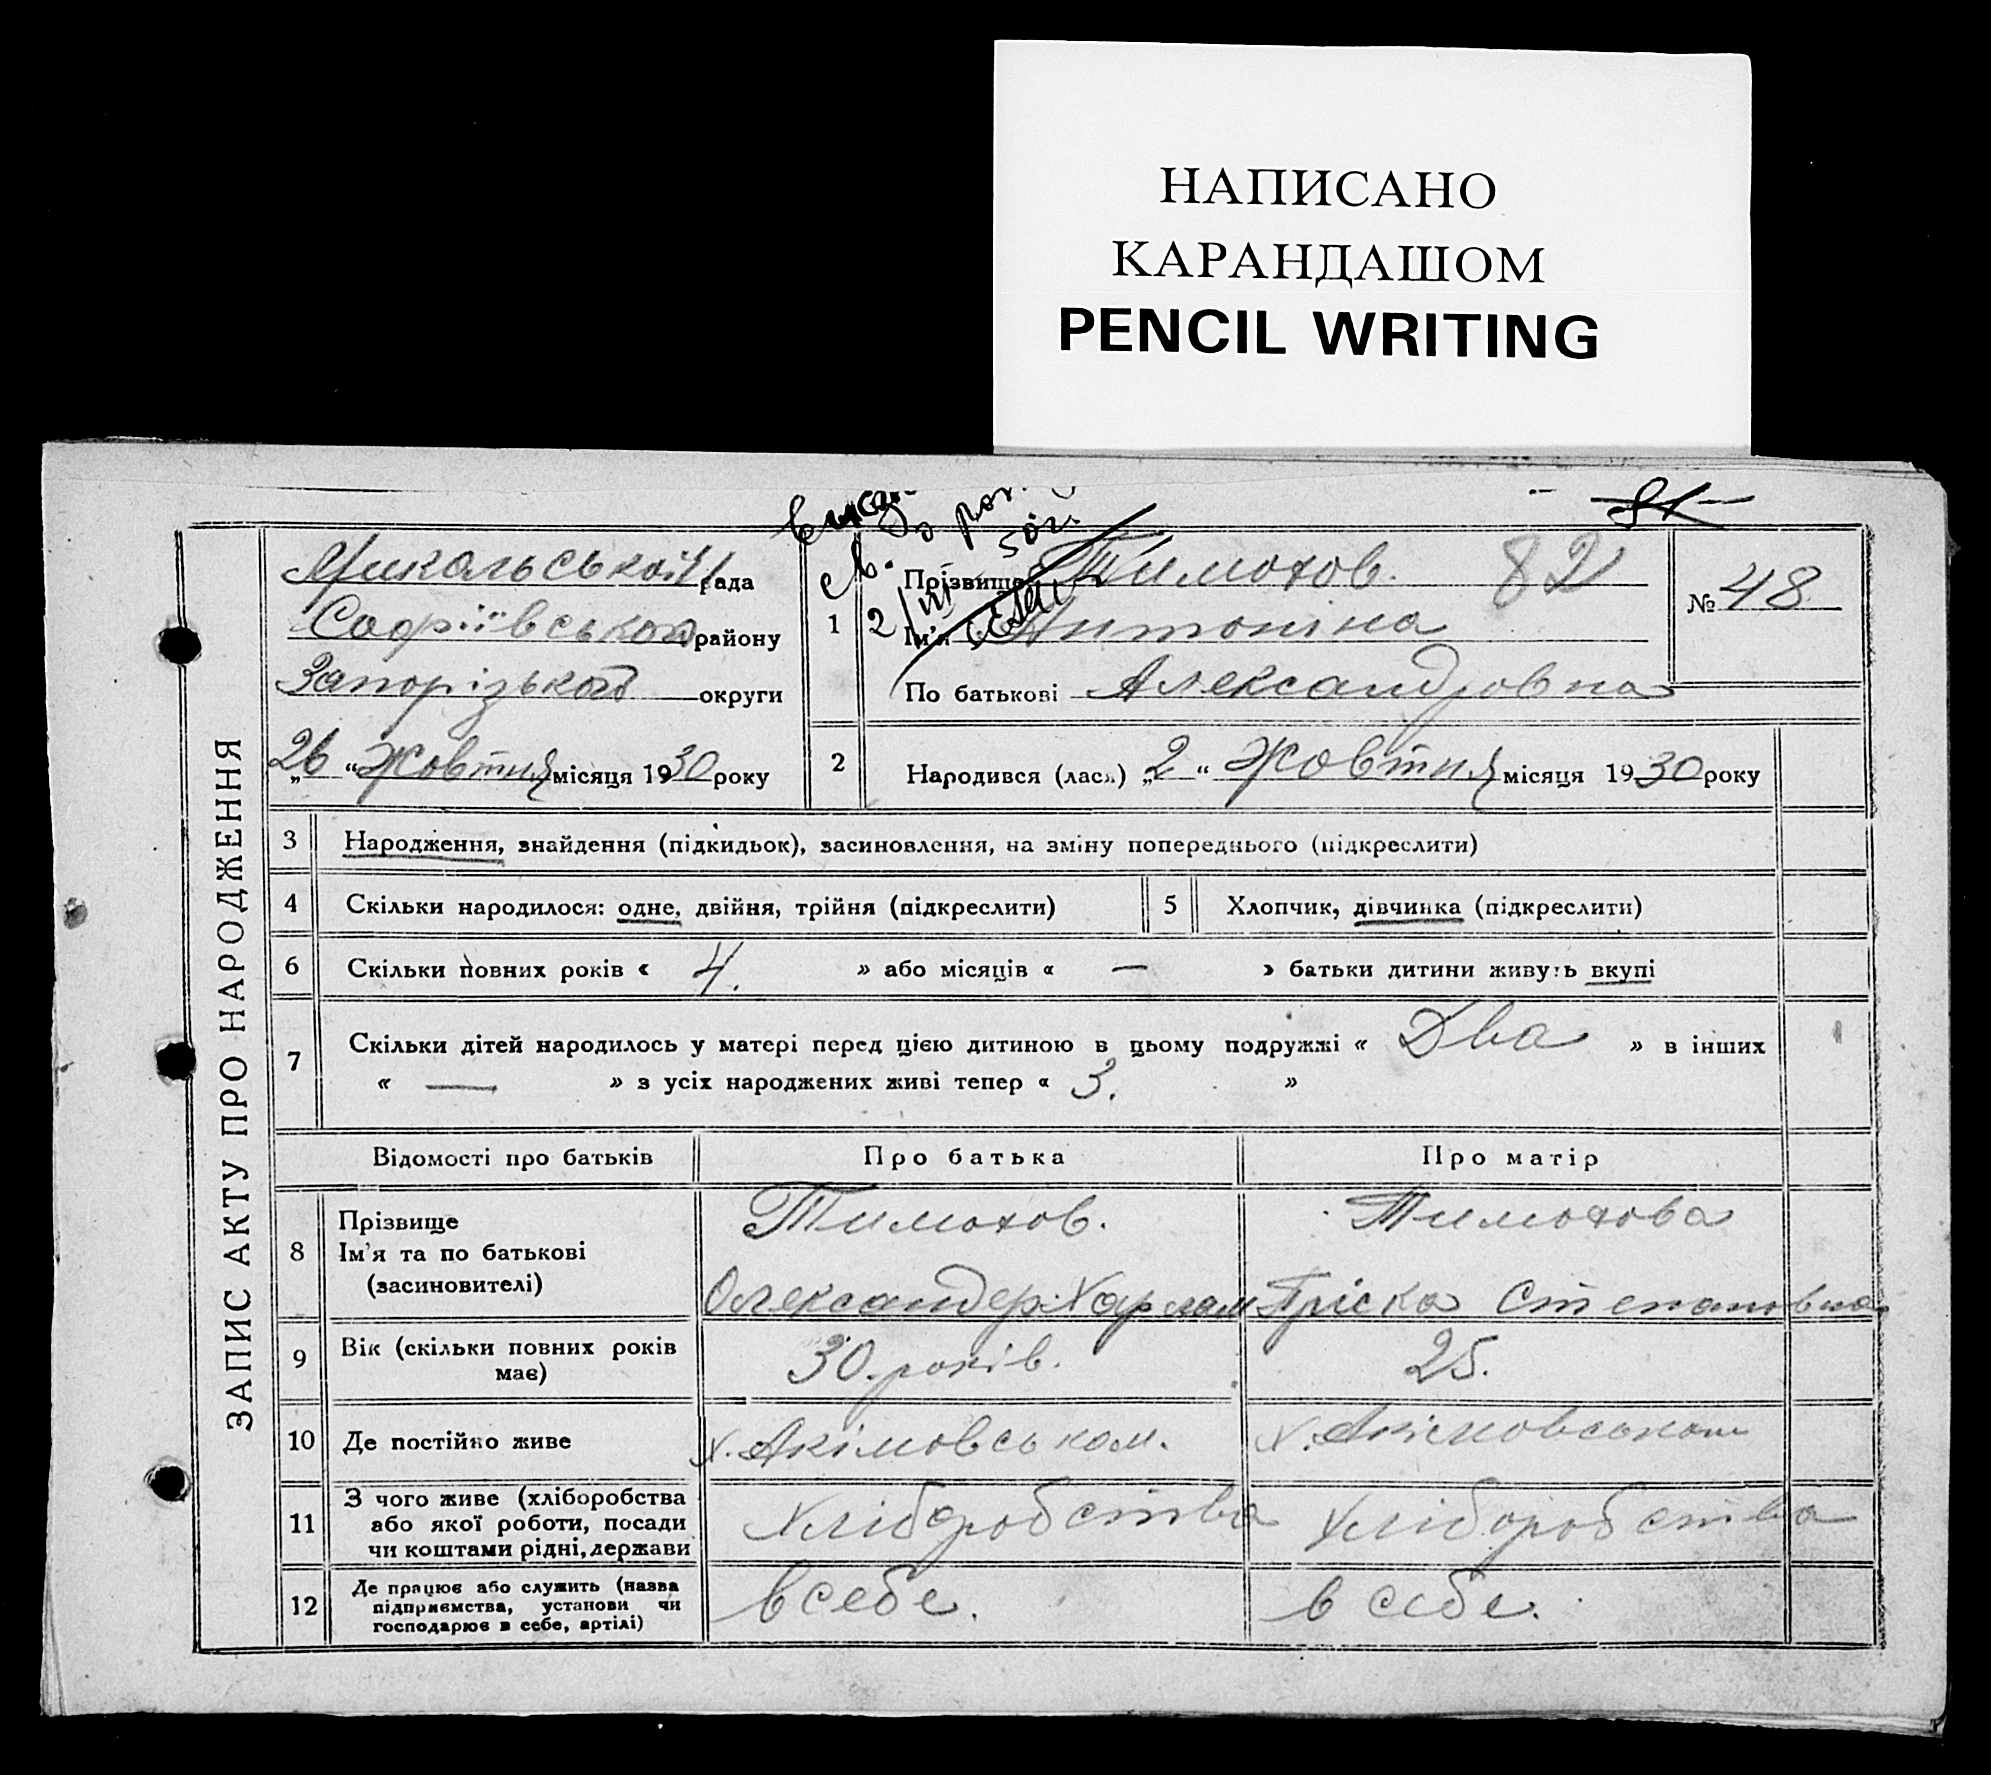 НАПИСАНО
КАРАНДАШОМ
PENCIL WRITING
81
ЗАПИС АКТУ ПРО НАРОДЖЕННЯ
Микольської рада
Софіївського району
Запорізького округи
„26 “ Жовтня місяця 1930 року
1 Прізвище Тимохов. 82
Ім'я Антоніна
По батькові Александровна
№ 48
2 Народився (лася) „2 “ Жовтня місяця 1930 року
3 Народження, знайдення (підкидьок), засиновлення, на зміну попереднього (підкреслити)
4 Скільки народилося: одне, двійня, трійня (підкреслити) 5 Хлопчик, дівчинка (підкреслити)
6 Скільки повних років « 4. » або місяців « — » батьки дитини живуть вкупі
7 Скільки дітей народилось у матері перед цією дитиною в цьому подружжі « Два » в інших
« — » з усіх народжених живі тепер « 3. »
Відомості про батьків Про батька Про матір
8 Прізвище Тимохов. Тимохова
Ім'я та по батькові
(засиновителі) Олександер Харлам Пріска Степановна
9 Вік (скільки повних років має) 30 років. 25.
10 Де постійно живе х. Акімовськом. х. Акімовськом
11 З чого живе (хліборобства
або якої роботи, посади
чи коштами рідні, держави Хліборобства Хліборобства
12 Де працює або служить (назва
підприємства, установи чи
господарює в себе, артілі) в себе. в себе.